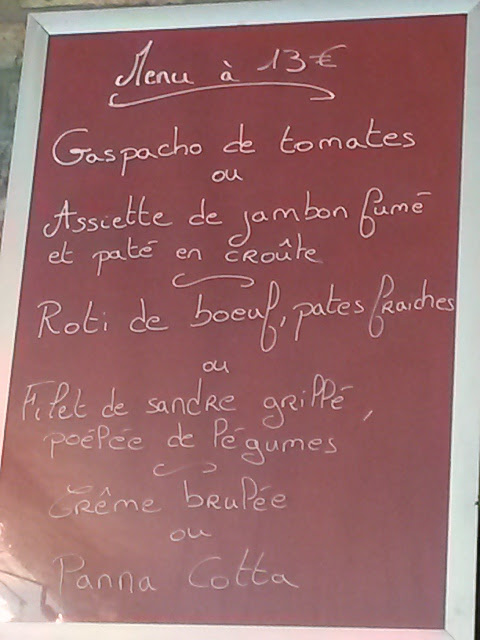 Menu à 13€
Gaspacho de tomates
ou
Assiette de jambon fumé
et paté en croûte
Roti de boeuf, pates fraiches
ou
Filet de sandre grillé,
poélée de légumes
Crême brulée
ou
Panna Cotta